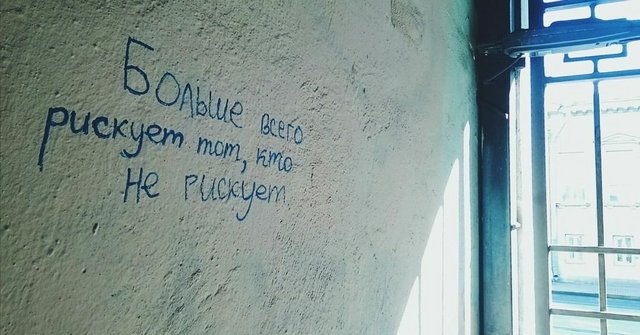 Больше всего
рискует тот, кто
не рискует